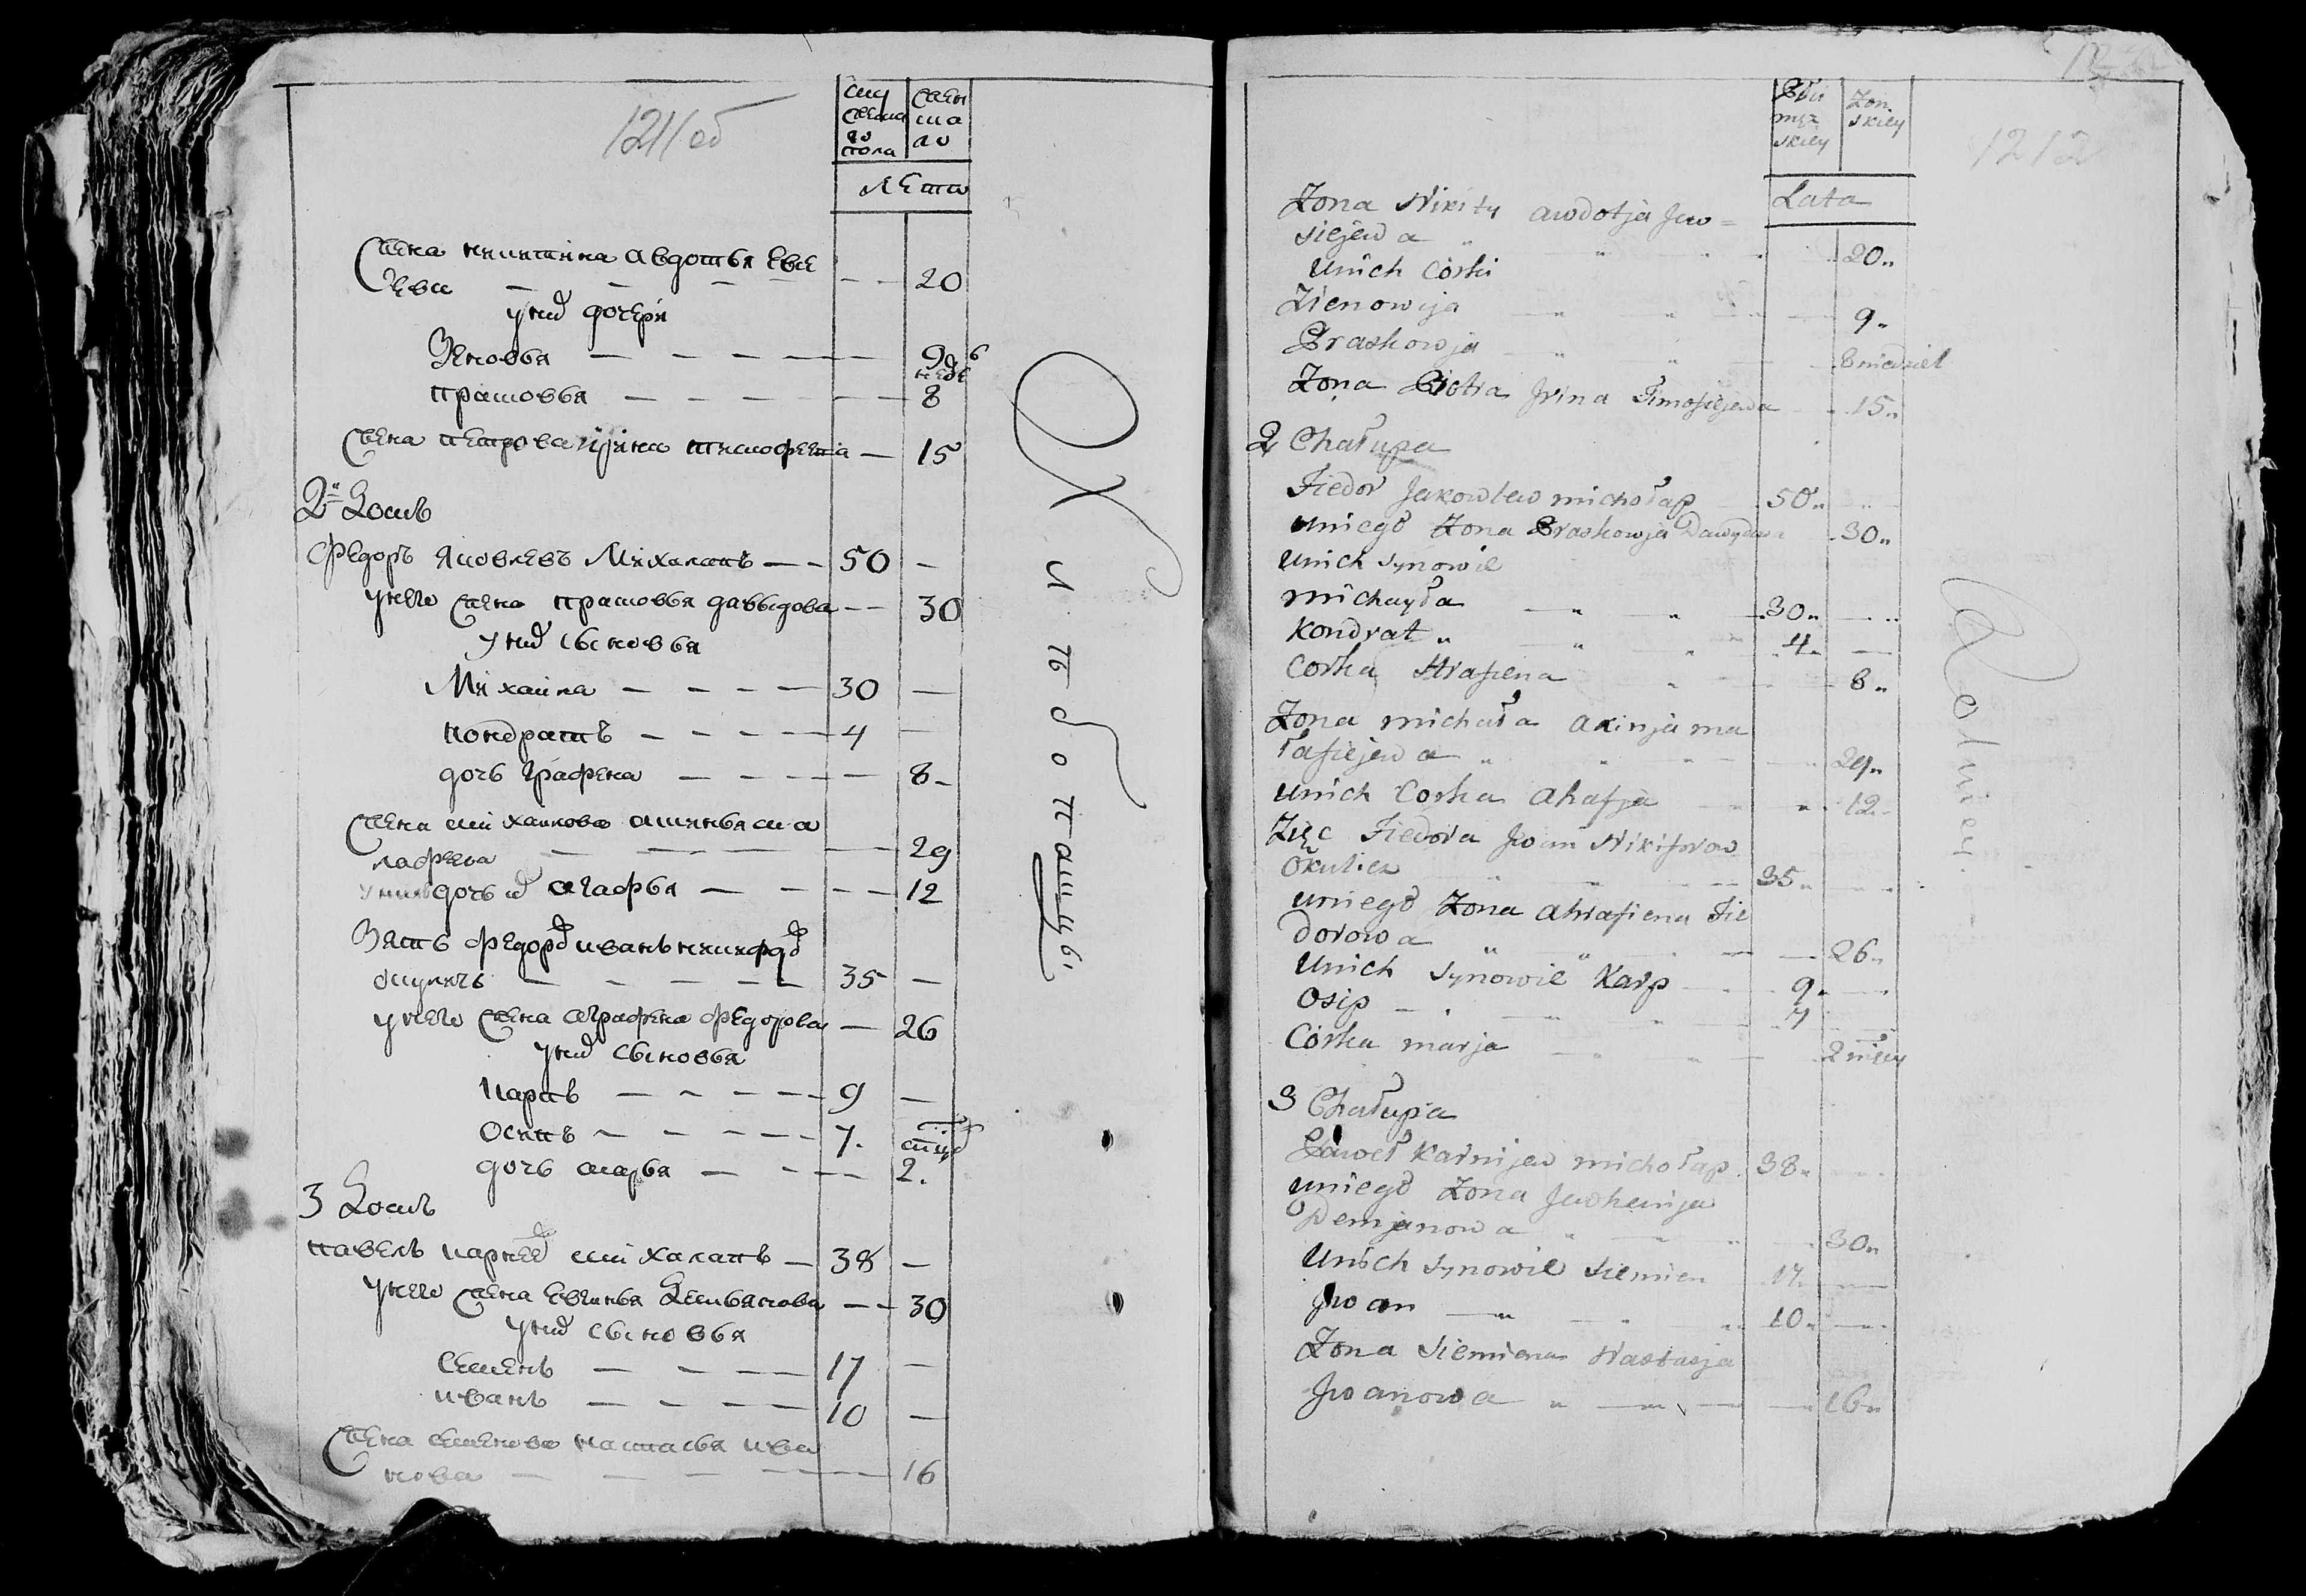 1211 об
муженаго пола
женкаго
Лета
Жена никитина авдотья Евсе
ева — — — — 20
у них дочери
Зеновья — — — — 9
недель
прасковья — — — — 8
Жена петрова ирина тимофеева — 15
2й Домъ
Федоръ Яковлевъ Михалапъ — 50 —
у него жена прасковья давыдова — 30
у них сыновья
Михаила — — — — 30 —
кондратъ — — — — 4 —
дочь Графена — — — — 8
Жена михаилова акинья ма
лафеева — — — 29
у нихъ дочь агафья — — — 12
Зять федоров иванъ никифоров
окуличъ — — — — 35 —
у него жена аграфена федорова — 26
у них сыновья
карпъ — — — — 9 —
Осипъ — — — — 7.
дочь марья — — — 2.
3 Домъ
павелъ карнеев михалапъ — 38 —
у него жена Евгинья Демьянова — 30
у них сыновья
Семенъ — — — 17 —
иванъ — — — 10 —
Жена семенова настасья ива
нова — — — — 16
Płci męzskiey
Zonskiey
1212
Lata
Zona Nikity awdotja Jew=
siejewa " " 20"
unich Córki
Zienowija " " 9"
Praskowja " " 8 niedziel
Zona Piotra Jrina Timofiejewa 15"
2 Chałupa
Fiedor Jakowlew michołap 50"
uniego Zona Praskowja Dawydowa 30"
unich Synowie
michayła " " 30"
Kondrat " " 4"
Corka Hrafiena " 8"
Zona michała akinja ma
łafiejewa " " 29"
unich Corka ahafja " 12"
Zięc Fiedora Jwan Nikiforow
Okulicz " " 35"
uniego Zona ahrafiena Fie
dorowa " " 26"
Unich Synowie Karp 9"
Osip " " 7
Córka marja " " 2 mięcy
3 Chałupa
Paweł Karnijew michołap 38"
uniego Zona Jewhenija
Demjanowa " " 30"
Unich Synowie Siemien 17"
Jwan " " 10"
Zona Siemiena Nastasja
Jwanowa " " 16"